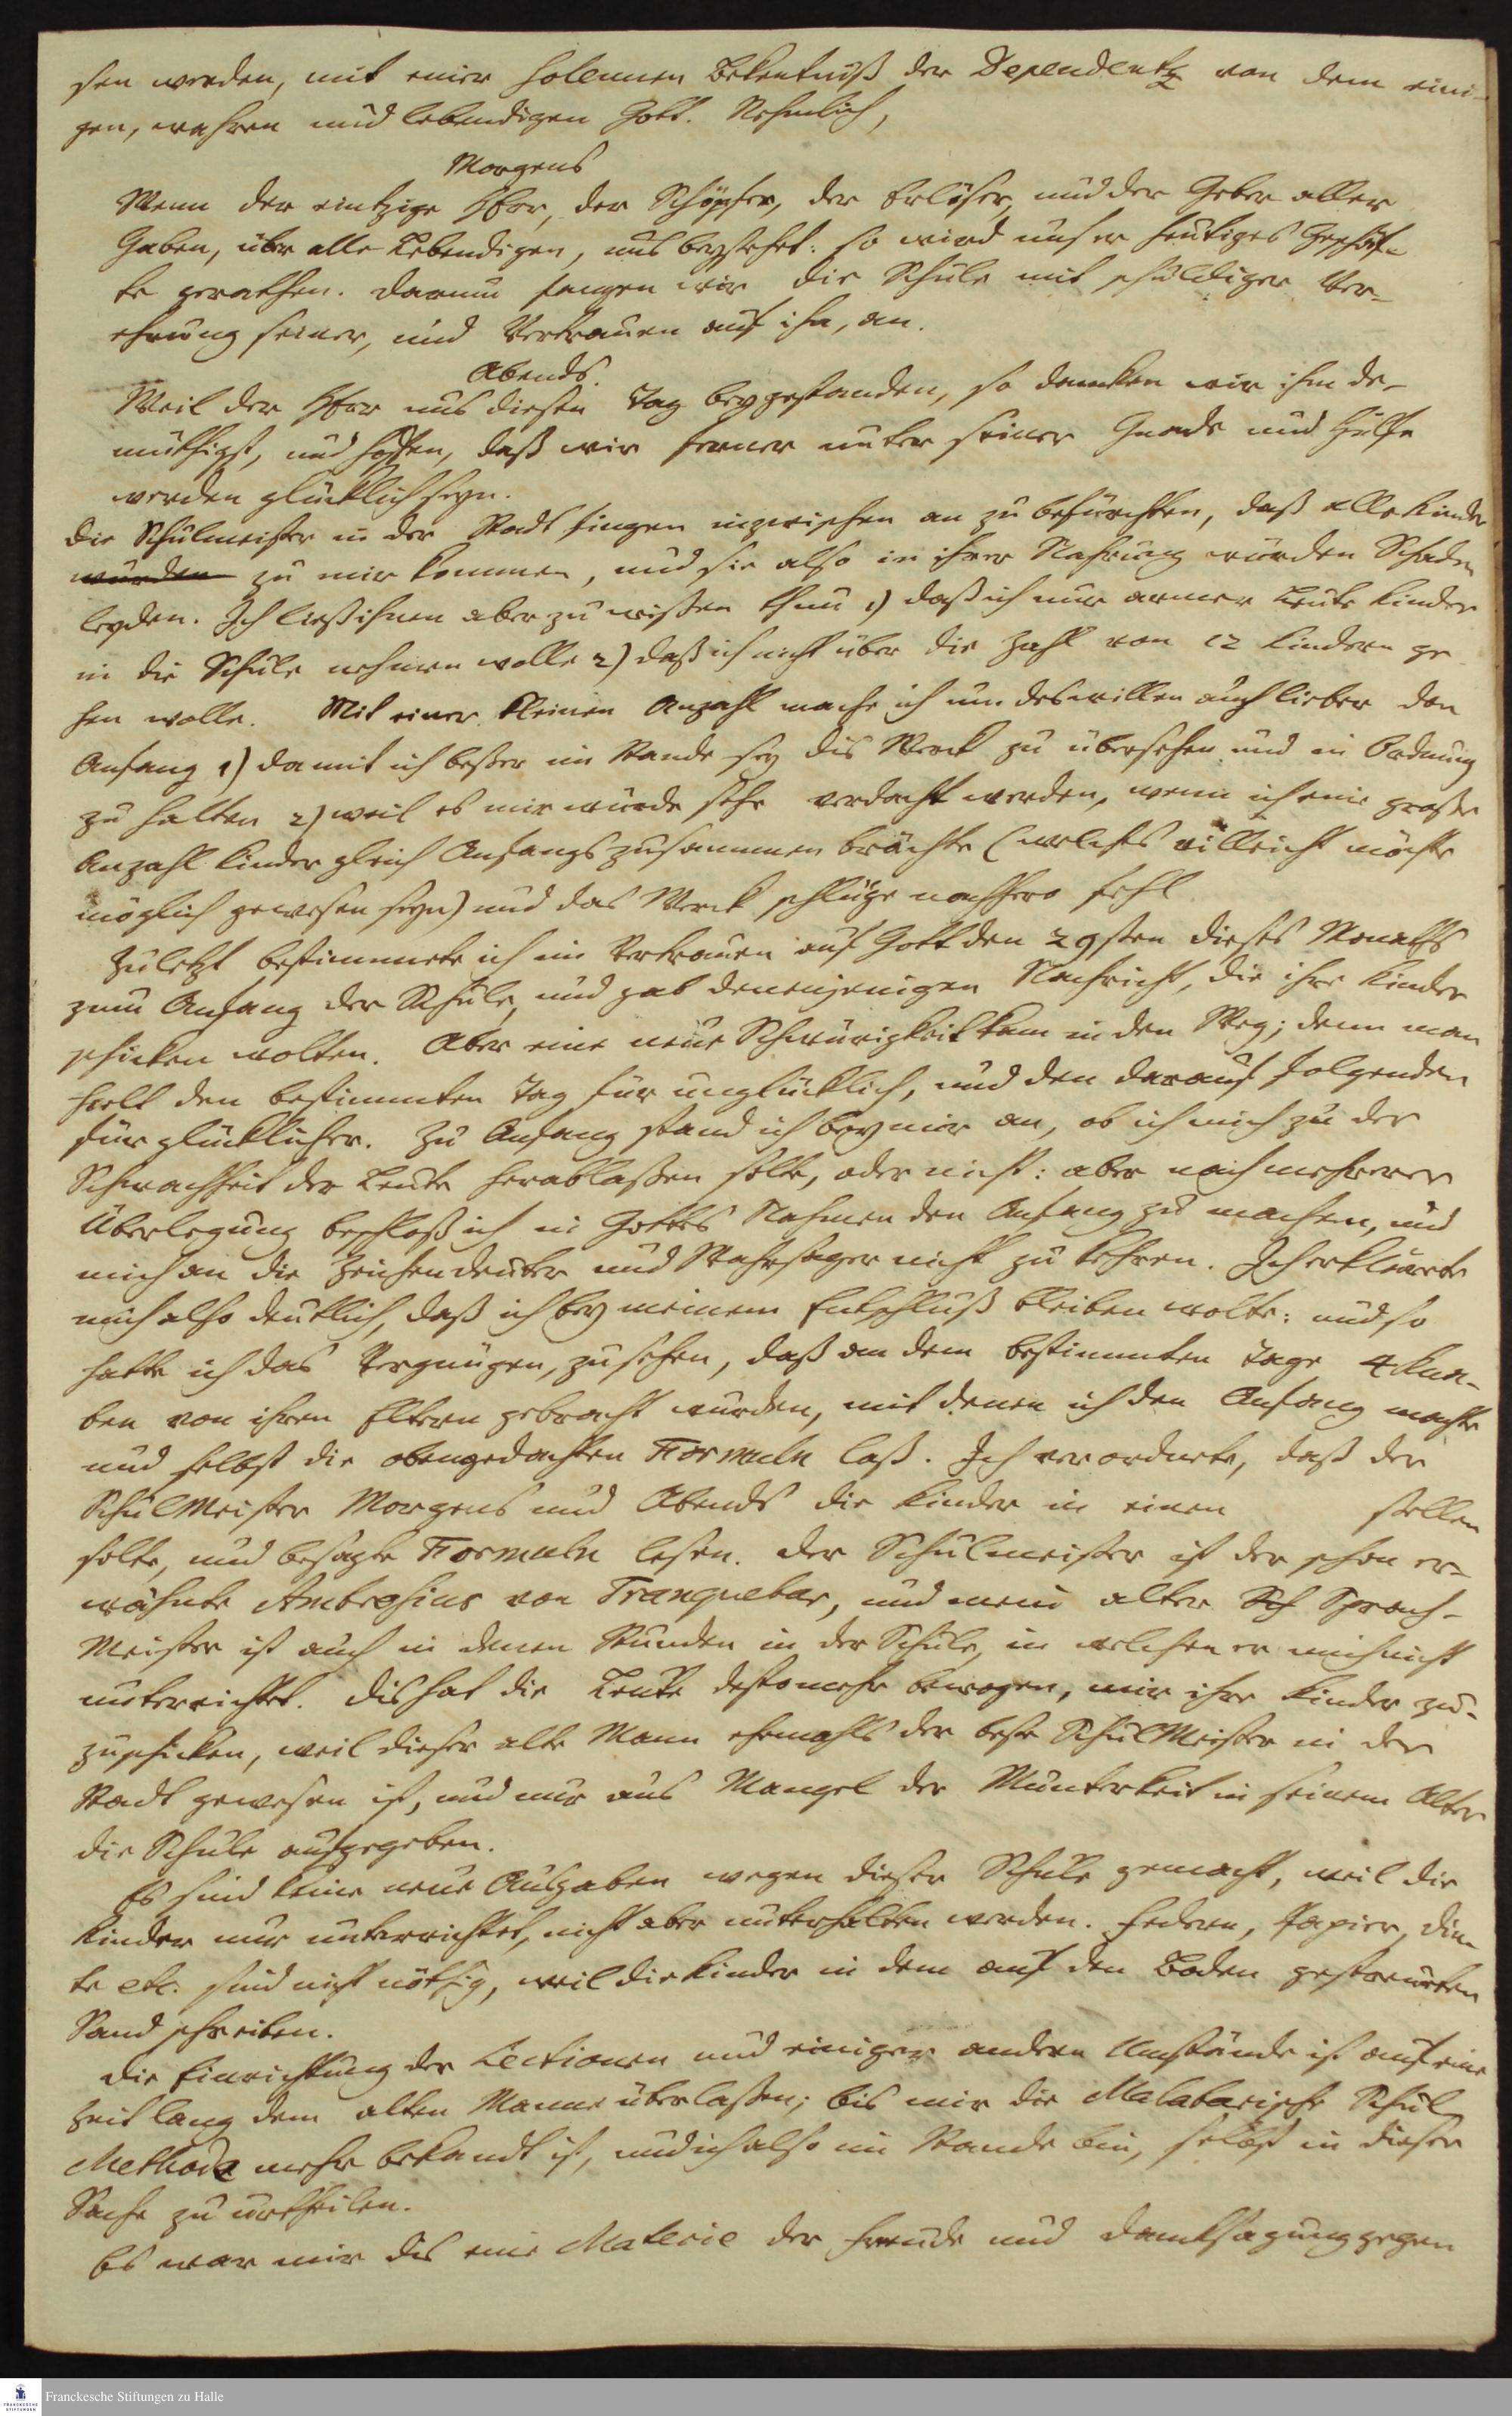 sen werden, mit einer solennen Bekentniß der Dependentz von dem eini-
gen, wahren und lebendigen Gott. Nehmlich,
Morgens
Wenn der eintzige Herr, der Schöpfer, der Erlöser, und der Geber aller
Gaben, über alle Lebendigen, uns beystehet: so wird unser heutiges Geschäf-
te gerathen. Darum fangen wir die Schule mit schuldiger Ver-
ehrung seiner, und Vertrauen auf ihn, an.
Abends.
Weil der Herr uns diesen Tag beygestanden, so dancken wir ihm de-
müthigst, und hoffen, daß wir ferner unter seiner Gnade und Hülfe
werden glücklich seyn.
Die Schulmeister in der Stadt fingen inzwischen an zu befürchten, daß alle Kinder
würden zu mir kommen, und sie also in ihrer Nahrung würden Schaden
leyden. Ich ließ ihnen aber zu wißen thun 1) daß ich nur armer Leute Kinder
in die Schule nehmen wolle 2) daß ich nicht über die Zahl von 12 Kindern ge
hen wolle. Mit einer kleinen Anzahl mache ich um deswillen auch lieber den
Anfang 1) damit ich beßer im Stande sey dis Werck zu übersehen und in Ordnung
zu halten 2) weil es mir würde sehr verdacht werden, wenn ich eine große
Anzahl Kinder gleich Anfangs zusammen brächte (welches villeicht möchte
möglich gewesen seyn) und das Werck schlüge nachhero fehl
Zuletzt bestimmete ich im Vertrauen auf Gott den 29sten dieses Monaths
zum Anfang der Schule, und gab denenjenigen Nachricht, die ihre Kinder
schicken wolten. Aber eine neue Schwürigkeit kam in den Weg; denn man
hielt den bestimmten Tag für unglücklich, und den darauf folgenden
für glücklicher. Zu Anfang stand ich bey mir an, ob ich mich zu der
Schwachheit der Leute herablaßen solte, oder nicht: aber nach mehrerer
Überlegung beschloß ich in Gottes Nahmen den Anfang zu machen, und
mich an die Zeichendeuter und Wahrsager nicht zu kehren. Ich erklärte
mich also deutlich, daß ich bey meinem Entschluß bleiben wolte: und so
hatte ich das Vergnügen, zu sehen, daß an dem bestimmten Tage 4 Kna-
ben von ihren Eltern gebracht wurden, mit denen ich den Anfang machte
und selbst die obengedachten Formuln laß. Ich verordnete, daß der
SchulMeister Morgens und Abends die Kinder in einen stellen
solte, und besagte Formuln lesen. Der Schulmeister ist der schon er-
wähnte Ambrosius von Tranquebar, und mein alter Sch Sprach-
Meister ist auch in denen Stunden in der Schule, in welchen er mich nicht
unterrichtet. Dis hat die Leute destomehr bewogen, mir ihre Kinder zu-
zuschicken, weil dieser alte Mann ehemahls der beste SchulMeister in der
Stadt gewesen ist, und nur aus Mangel der Munterkeit in seinem Alter
die Schule aufgegeben.
Es sind keine neue Ausgaben wegen dieser Schule gemacht, weil die
Kinder nur unterrichtet, nicht aber unterhalten werden. Federn, Papier, Din-
te etc. sind nicht nöthig, weil die Kinder in dem auf den Boden gestreueten
Sand schreiben.
Die Einrichtung der Lectionen und einiger andern Umstände ist auf eine
Zeit lang dem alten Manne überlaßen; bis mir die Malabarische Schul
Methode mehr bekandt ist, und ich also im Stande bin, selbst in dieser
Sache zu urtheilen.
Es war mir dis eine Materie der Freude und Dancksagung gegen
Franckesche Stiftungen zu Halle